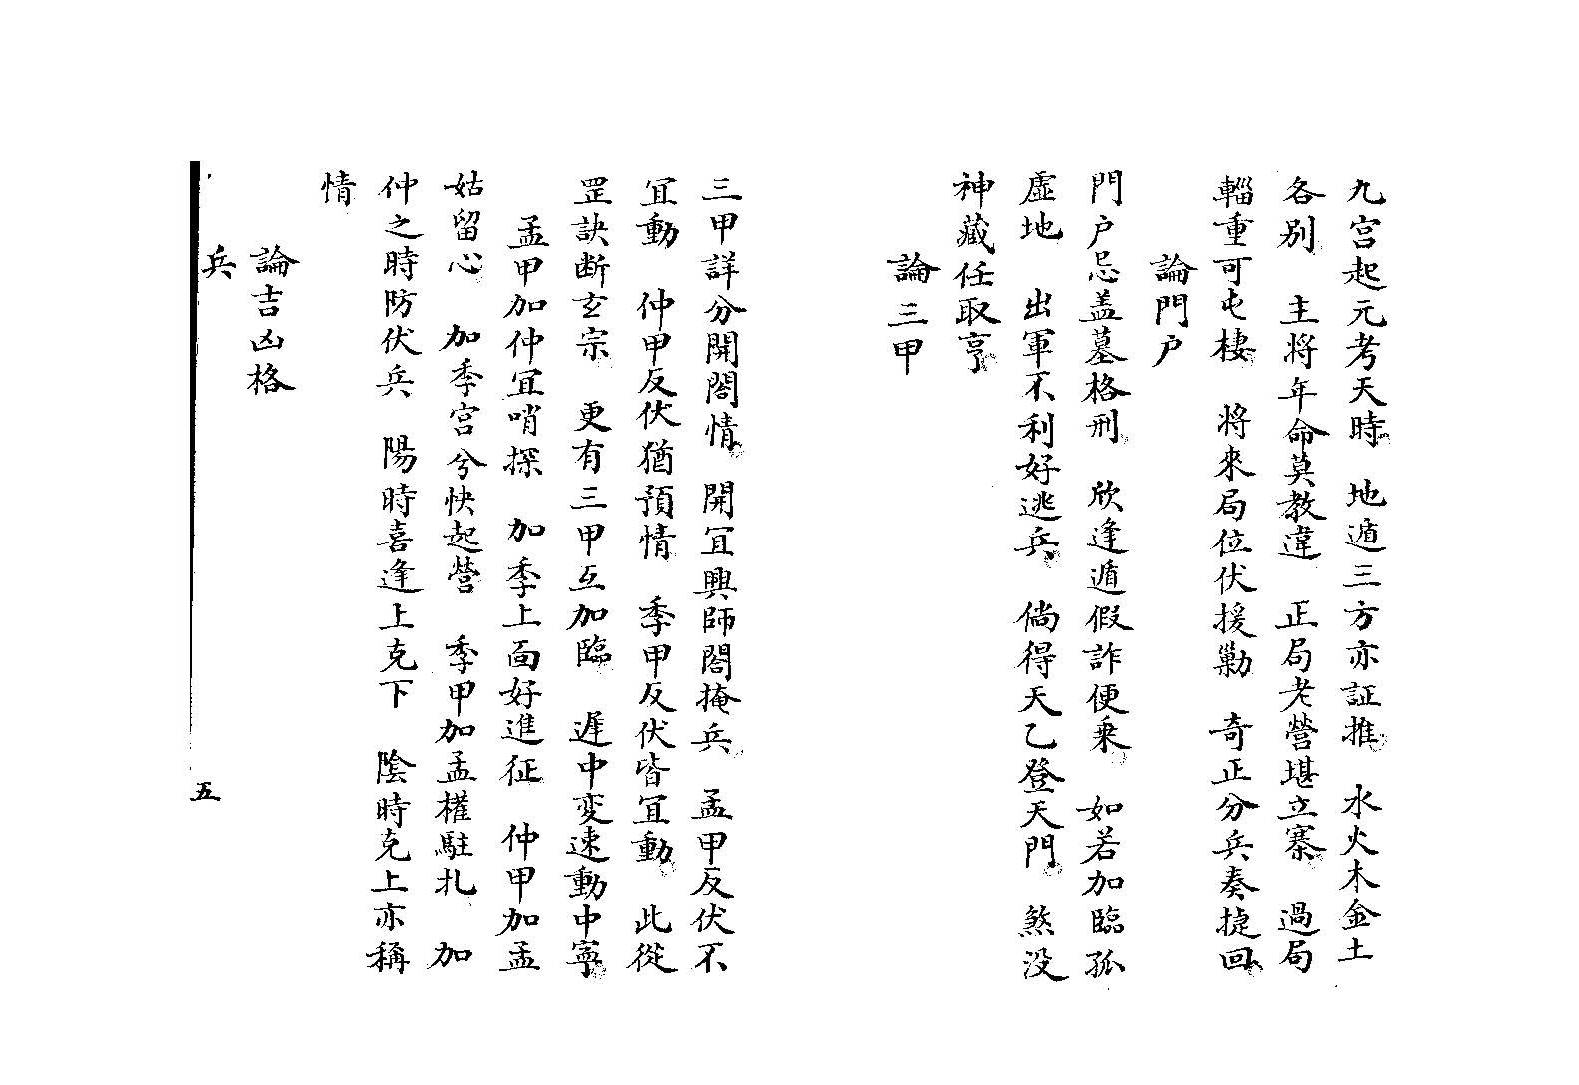 九宫起元考天時　地遁三方亦証推　水火木金土
各别　主將年命莫教違　正局老營堪立寨　過局
輜重可屯棲　將來局位伏援勦　奇正分兵奏捷回
論門户
門户忌盖墓格刑　欣逢遁假詐便乗　如若加臨孤
虛地　出軍不利好逃兵　倘得天乙登天門　煞没
神藏任取亨
論三甲
三甲詳分開閤情　開冝興師閤掩兵　孟甲反伏不
冝動　仲甲反伏猶預情　季甲反伏皆冝動　此從
罡訣断玄宗　更有三甲互加臨　遲中変速動中寧
孟甲加仲冝哨探　加季上面好進征　仲甲加孟
姑留心　加季宫兮快起營　季甲加孟權駐扎　加
仲之時防伏兵　陽時喜逢上克下　陰時克上亦稱
情
論吉凶格
兵
五